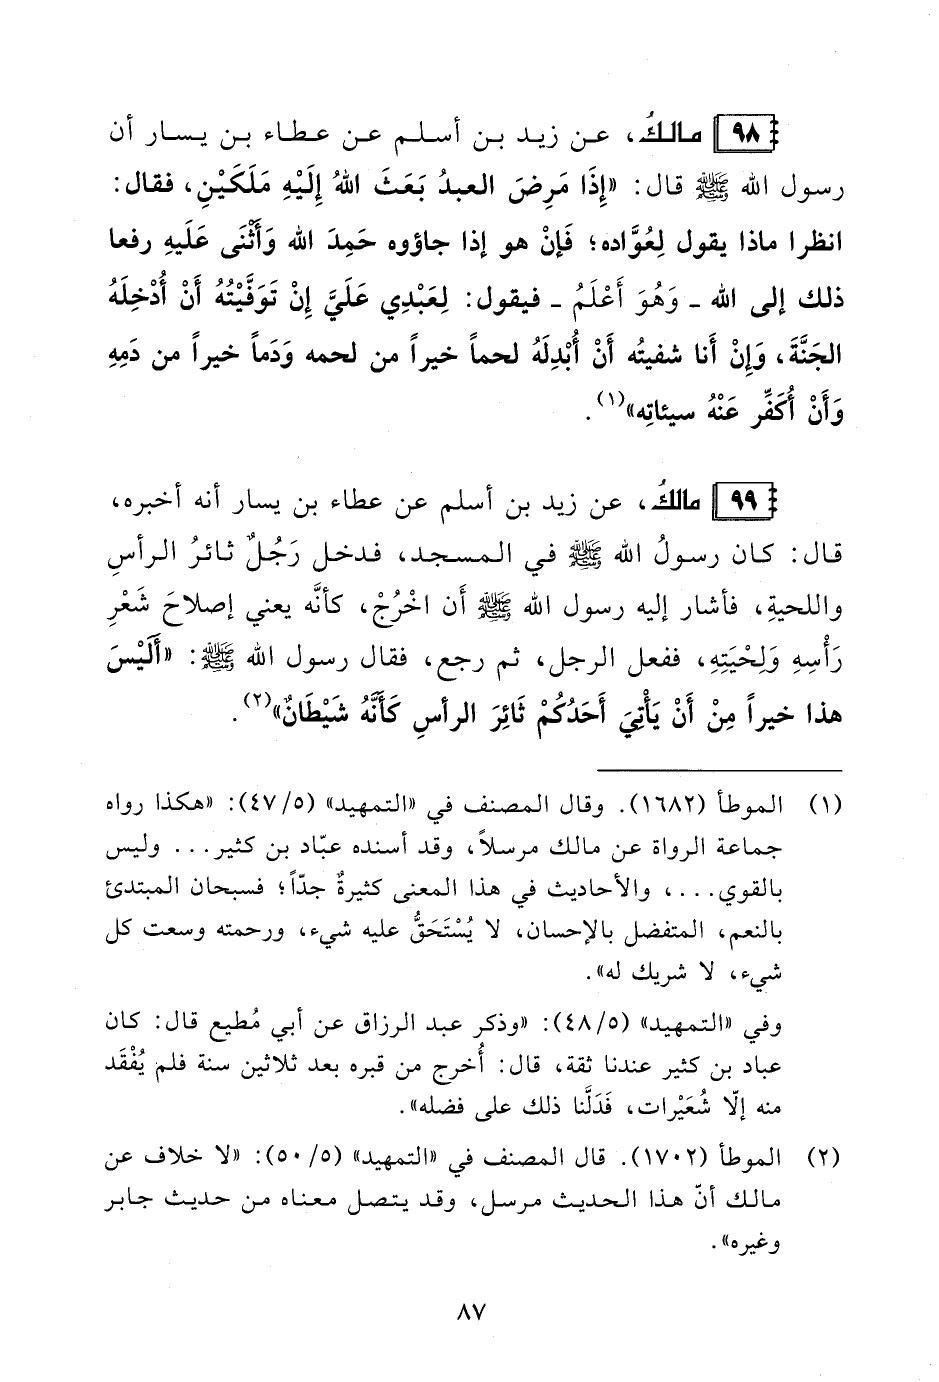 ٩٨ مالكُ، عن زيد بن أسلم عن عطاء بن يسار أن
رسول الله ﷺ قال: «إِذَا مَرِضَ العبدُ بَعَثَ اللهُ إِلَيْهِ مَلَكَيْنِ، فقال:
انظرا ماذا يقول لِعُوَّاده؛ فَإِنْ هو إذا جاؤوه حَمِدَ الله وَأَثْنَى عَلَيهِ رفعا
ذلك إلى الله ـ وَهُوَ أَعْلَمُ ـ فيقول: لِعَبْدِي عَلَيَّ إِنْ تَوَفَّيْتُهُ أَنْ أُدْخِلَهُ
الجَنَّةَ، وَإِنْ أَنا شفيتُه أَنْ أُبْدِلَهُ لحماً خيراً من لحمه وَدَماً خيراً من دَمِهِ
وَأَنْ أُكَفِّر عَنْهُ سيئاتِه»(١).
٩٩ مالكُ، عن زيد بن أسلم عن عطاء بن يسار أنه أخبره،
قال: كان رسولُ الله ﷺ في المسجد، فدخل رَجُلٌ ثائرُ الرأسِ
واللحيةِ، فأشار إليه رسول الله ﷺ أَن اخْرُجْ، كأنَّه يعني إصلاحَ شَعْرِ
رَأْسِهِ وَلِحْيَتِهِ، ففعل الرجل، ثم رجع، فقال رسول الله ﷺ: «أَلَيْسَ
هذا خيراً مِنْ أَنْ يَأْتِيَ أَحَدُكُمْ ثَائِرَ الرأسِ كَأَنَّهُ شَيْطَانٌ»(٢).
(١) الموطأ (١٦٨٢). وقال المصنف في «التمهيد» (٤٧/٥): «هكذا رواه
جماعة الرواة عن مالك مرسلاً، وقد أسنده عبّاد بن كثير... وليس
بالقوي...، والأحاديث في هذا المعنى كثيرةٌ جدّاً؛ فسبحان المبتدئ
بالنعم، المتفضل بالإحسان، لا يُسْتَحَقُّ عليه شيء، ورحمته وسعت كل
شيء، لا شريك له».
وفي «التمهيد» (٤٨/٥): «وذكر عبد الرزاق عن أبي مُطيع قال: كان
عباد بن كثير عندنا ثقة، قال: أُخرج من قبره بعد ثلاثين سنة فلم يُفْقَد
منه إلّا شُعَيْرات، فَدَلَّنا ذلك على فضله».
(٢) الموطأ (١٧٠٢). قال المصنف في «التمهيد» (٥٠/٥): «لا خلاف عن
مالك أنّ هذا الحديث مرسل، وقد يتصل معناه من حديث جابر
وغيره».
٨٧